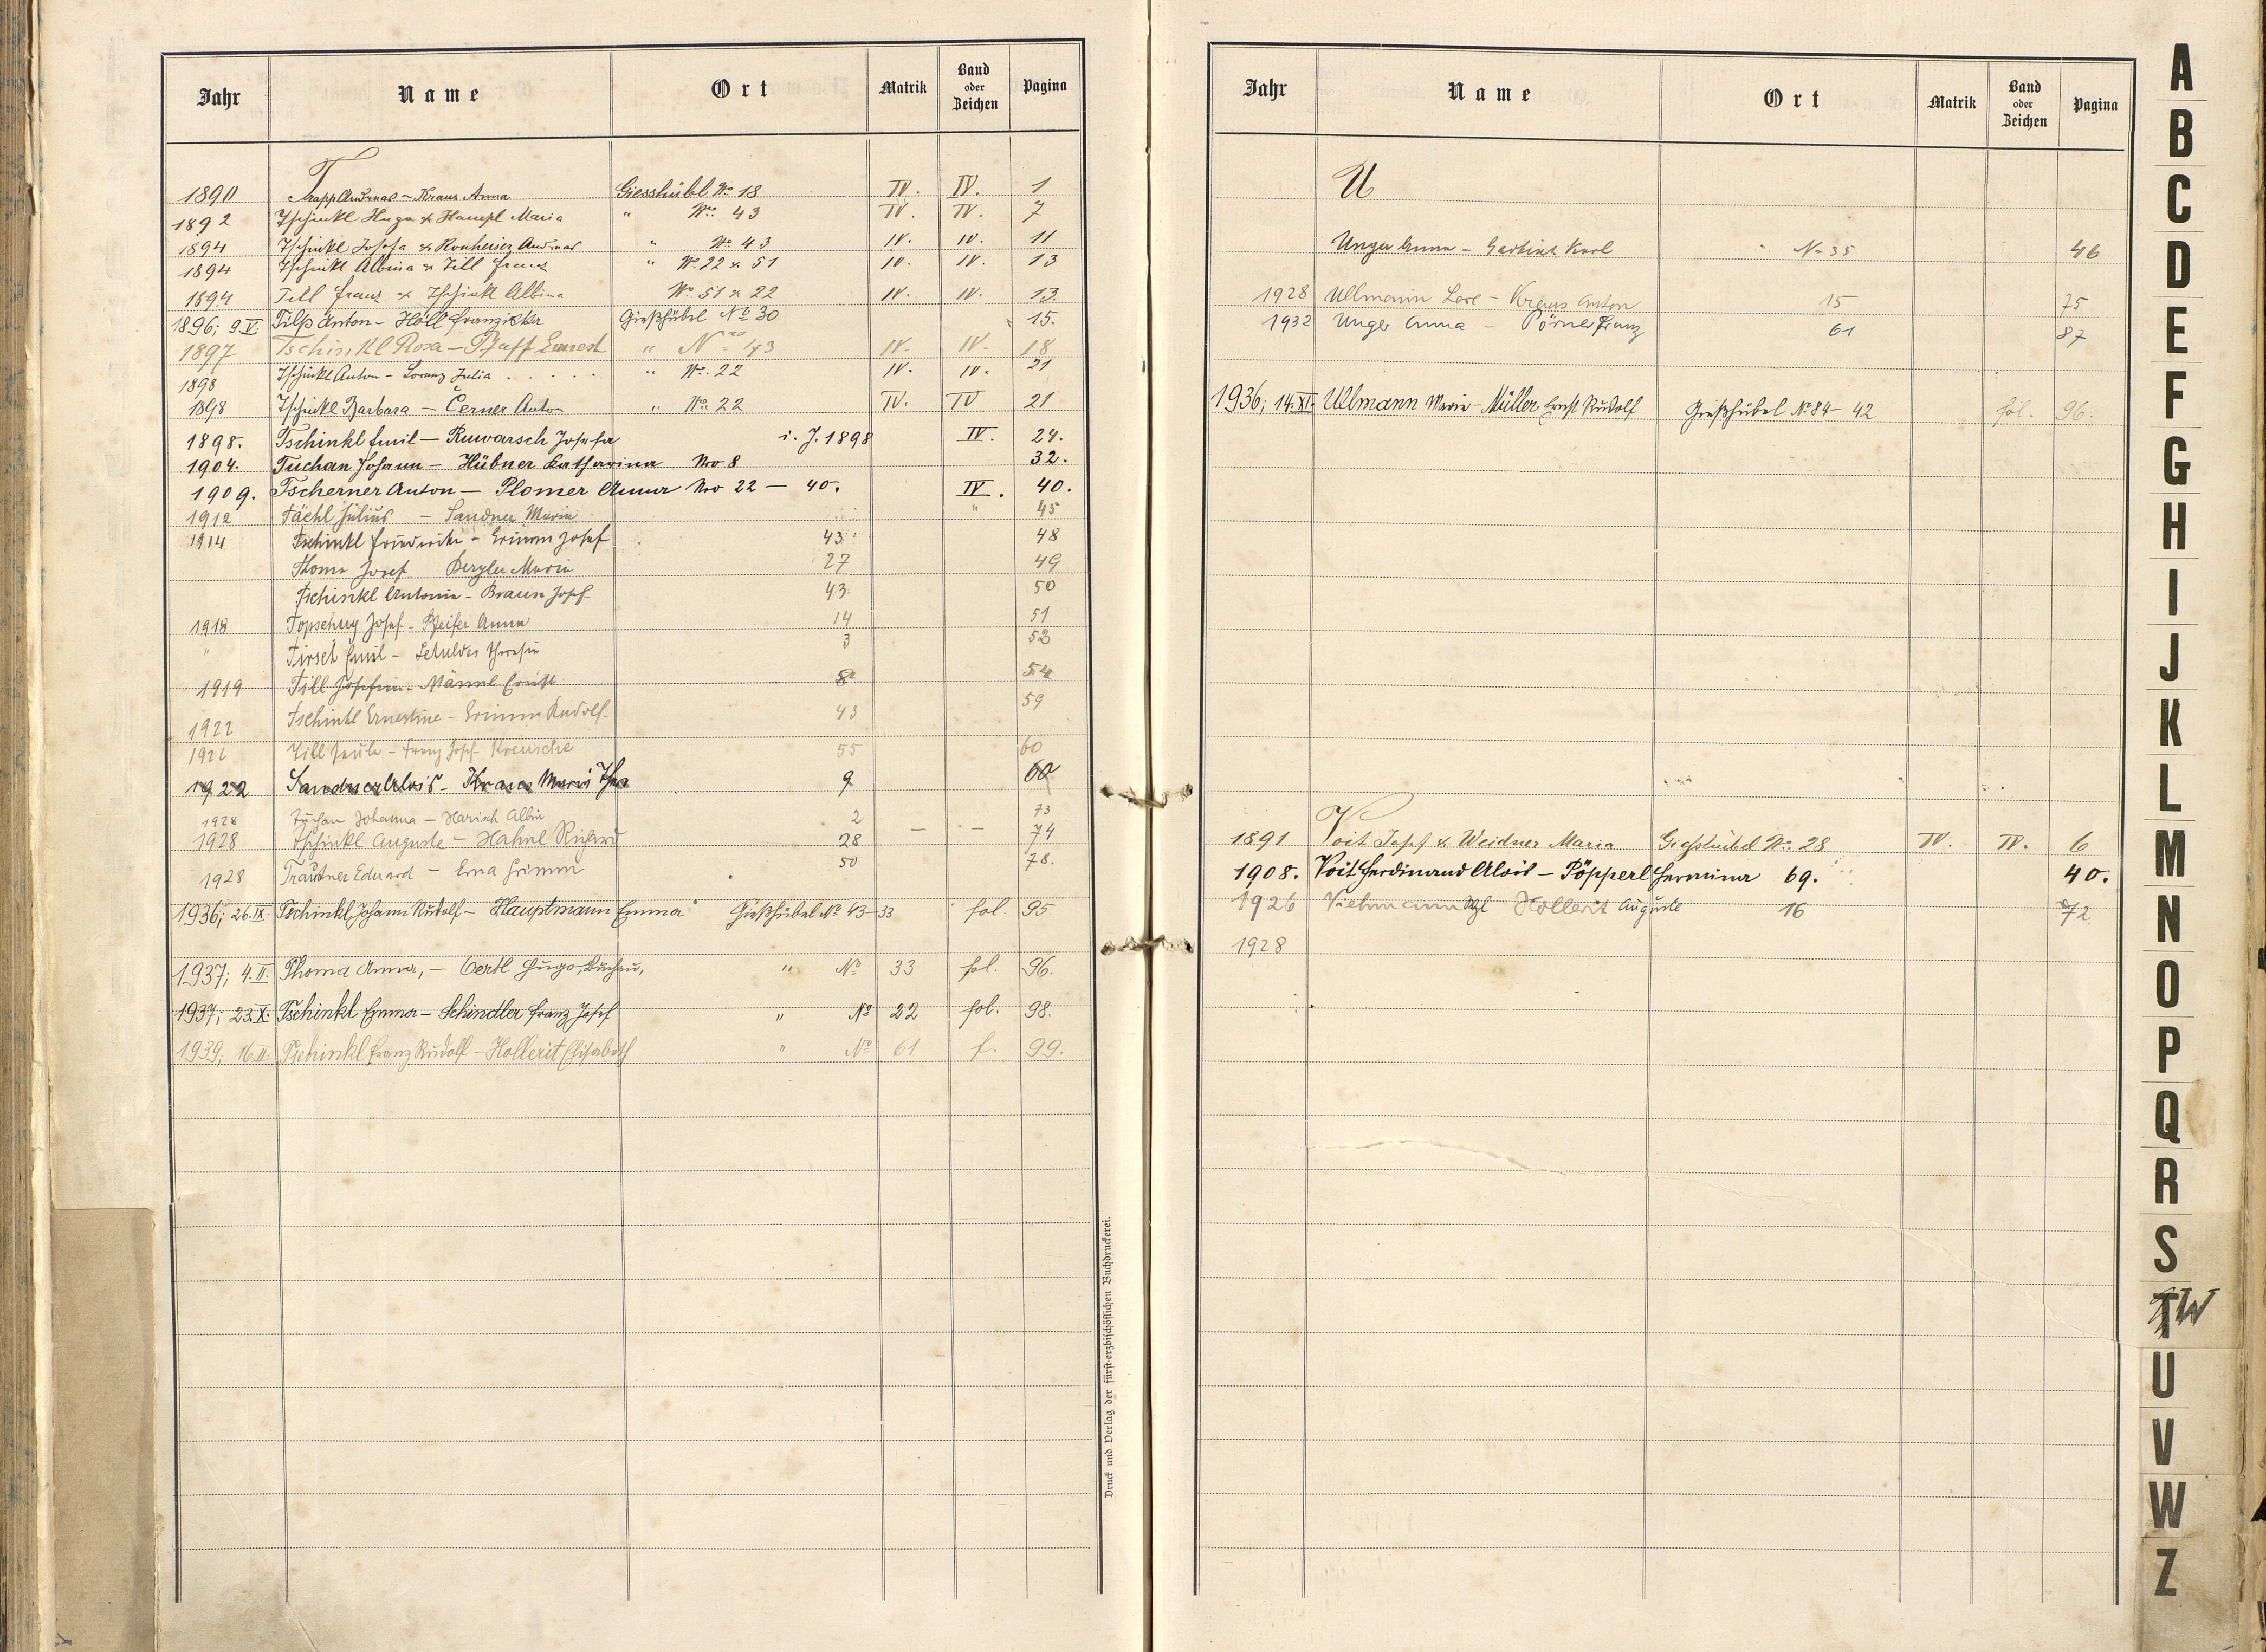 Jahr Name Ort Matrik Band oder Zeichen Pagina
T
1890 Trapp Andreas – Kraus Anna Giesshübl No. 18 IV. IV. 1
1892 Tschinkl Hugo & Hampl Maria " No. 43 IV. IV. 7
1894 Tschinkl Josefa & Andreas " No 43 IV. IV. 11
1894 Tschinkl Albina & Till Franz " No. 22 & 51 IV. IV. 13
1894 Till Franz & Tschinkl Albina No. 51 & 22 IV. IV. 13
1896; 9.V. Tilp Anton – Höll Franziska Gießhübel No 30 15.
1897 Tschinkl Rosa – Pfaff Ernest " Nro 43 IV. IV. 18
1898 Tschinkl Anton – Lorenz Julia . . . . . " No. 22 IV. IV. 21
1898 Tschinkl Barbara – Černer Anton " No. 22 IV. IV 21
1898. Tschinkl Emil – Ruwarsch Josefa i. J. 1898 IV. 24.
1904. Tuchan Johann – Hübner Katharina Nro 8 32.
1909. Tscherner Anton – Plomer Anna Nro 22 – 40. IV. 40.
1912 Tächl Julius – Sandner Maria " 45
1914 Tschinkl Friederike – Grimm Josef 43 48
Thoma Josef Bergler Maria 27 49
Tschinkl Antonie – Braun Josef 43. 50
1918 Topschug Josef – Pfeifer Anna 14 51
" Tirsch Emil – Schuldes Theresia 3 52
1919 Till Josefine – Männl Ernst 8 54
1922 Tschinkl Ernestine – Grimm Rudolf 43 59
1922 Till Paula – Franz Josef Kreusche 55 60
1922 Sandner Alois – Kraus Maria Ther 9 60
1928 Tuchan Johanna – Harisch Albin 2 73
1928 Tschinkl Auguste – Hahnl Richard 28 – – 74
1928 Trautner Eduard – Erna Grimm 50 78.
1936; 26.IX Tschinkl Johann Rudolf – Hauptmann Emma Gießhübel No 43–33 fol 95
1937; 4.II. Thoma Anna, – Oertl Hugo, Buchau, " No 33 fol. 96.
1937; 23.X. Tschinkl Emma – Schindler Franz Josef " No 22 fol. 98.
1939; 16.II. Tschinkl Franz Rudolf – Hollerit Elisabeth " No 61 f. 99.
Druck und Verlag der fürst-erzbischöflichen Buchdruckerei.
Jahr Name Ort Matrik Band oder Zeichen Pagina
U
Unger Anna – Karl No 35 46
1928 Ullmann – Kraus Anton 15 75
1932 Unger Anna – Pörner Franz 61 87
1936; 14.XI. Ullmann Marie – Müller Ernst Rudolf Gießhübel No 84 – 42 fol. 96.
1891 Voit Josef & Weidner Maria Giesshübel No. 28 IV. IV. 6
1908. Voit Ferdinand Alois – Pöpperl Hermina 69. 40.
1926 Viehmann Hollerit Auguste 16 72
1928
A
B
C
D
E
F
G
H
I
J
K
L
M
N
O
P
Q
R
S
T W
U
V
W
Z